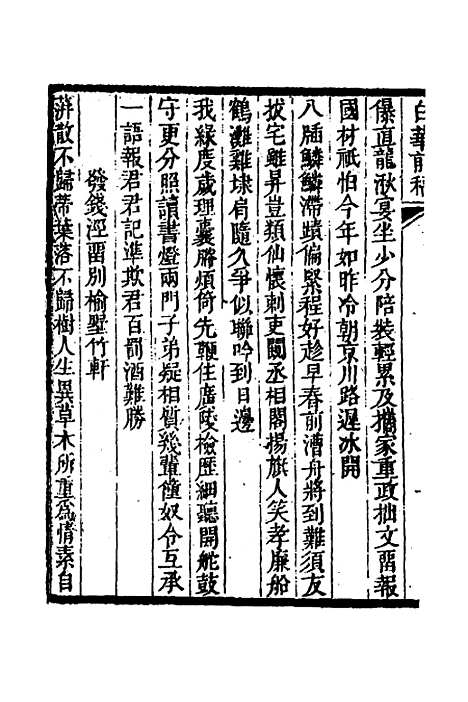 白華前稿
儤直龍湫宴坐少分陪裝輕累及攜家重政拙文畱報
國材祇怕今年如昨冷朝京川路遲冰開
八牐鱗鱗滯蹟偏緊程好趁早春前漕舟將到難須友
拔宅雖昇豈類仙懷刺吏闚丞相閤揚旗人笑孝廉船
鶴灘難埭肩隨久爭似聯吟到日邊
我緣度歲理囊勝煩倚先鞭住廣陵檢歷細聽開舵鼓
守更分照讀書燈兩門子弟疑相質幾輩僮奴令互承
一語報君君記準欺君百罰酒難勝
發錢涇畱別榆墅竹軒
湃散不歸蒂葉落不歸樹人生異草木所重爲情素自